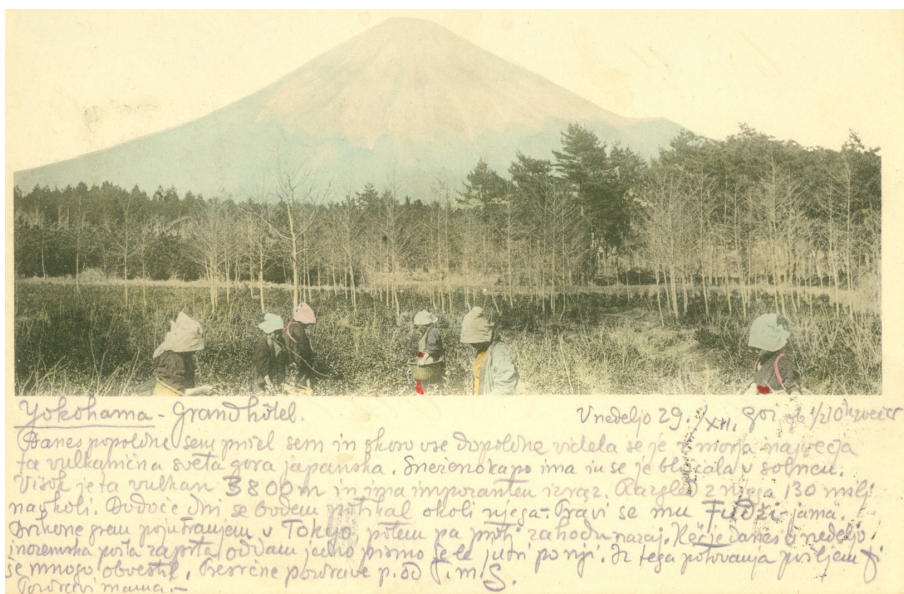 Yokohama - Grand hôtel. V nedeljo 29./XII. 901 ob 1/2 10h zvečer
Danes popoldne sem prišel sem in skoro vse dopoldne videla se je z morja največja
ta vulkanična sveta gora japanska. Sneženo kapo ima in se je bliščala v solncu.
Visok je ta vulkan 3800 m in ima impozanten izraz. Razgled z njega 130 milj
naokoli. Bodoče dni se bodem potikal okoli njega. Pravi se mu Fudzi-jama.
Bržkone grem pojutranjem v Tokyo potem pa proti zahodu nazaj. Ker je danes nedelja
inozemska pošta zaprta, oddam jedno pismo še le jutri po nji. Iz tega potovanja pošljem Ti
še mnogo obvestil. Presrčne pozdrave p. od
Pozdravi mama. -